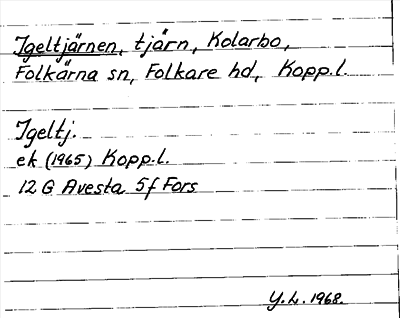 Igeltjärnen, tjärn, Kolarbo,
Folkärna sn, Folkare hd, Kopp.l.
Igeltj.
ek (1965) Kopp.l.
12 G Avesta 5f Fors
Y.L. 1968.